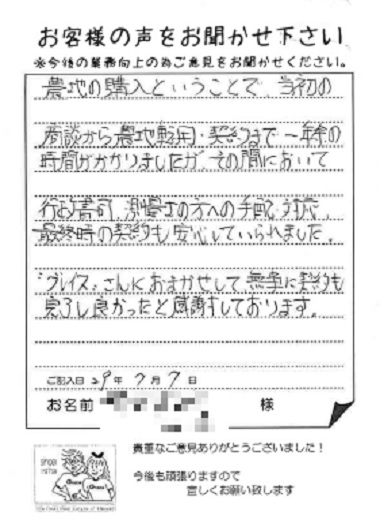 お客様の声をお聞かせ下さい
※今後の業務向上の為ご意見をお聞かせください。
農地の購入ということで、当初の
商談から農地転用・契約まで一年余の
時間がかかりましたが、その間において
行政書司、測量士の方への手配、対応、
最終時の契約も安心していられました。
プレイス、さんにおまかせして無事に契約も
完了し良かったと感謝しております。
ご記入日 29年 7月 7日
お名前 様
貴重なご意見ありがとうございました！
今後も頑張りますので
宜しくお願い致します